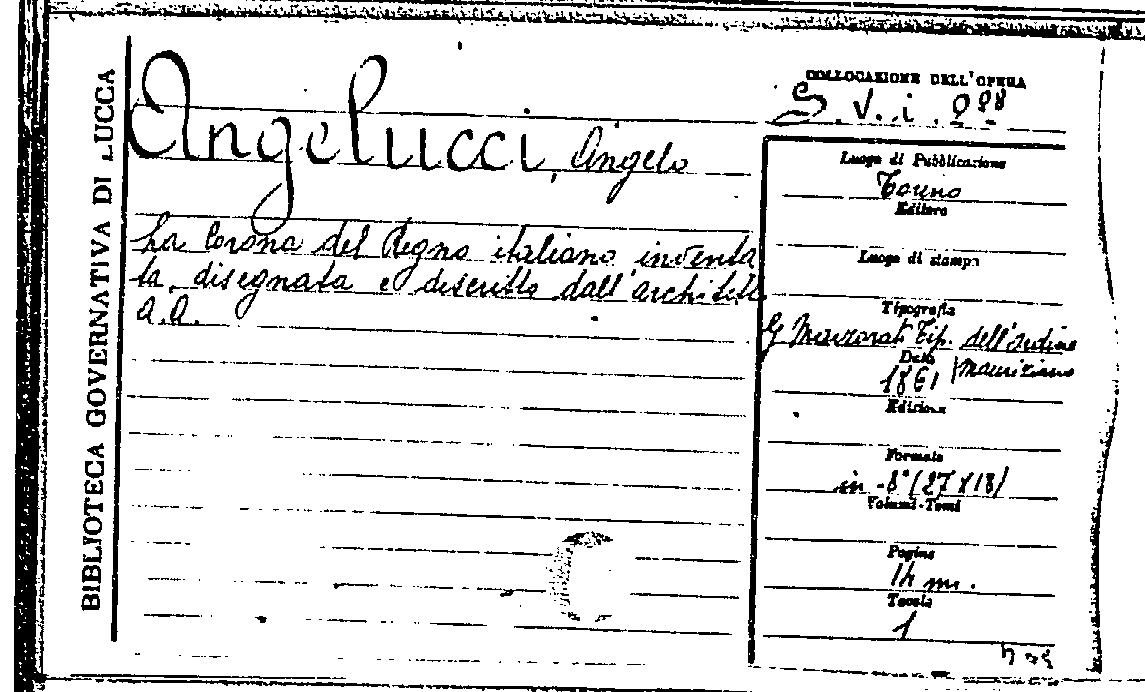 BIBLIOTECA GOVERNATIVA DI LUCCA
Angelucci, Angelo
La Corona del Regno italiano inventa
ta, disegnata e descritta dall'architetto
A.A.
COLLOCAZIONE DELL'OPERA
S. V. i.
Luogo di Pubblicazione
Torino
Editore
Luogo di stampa
Tipografia
G Marzorati Tip. dell'ordine
Mauriziano
Data
1861
Edizione
Formato
in -8° (27 x 18)
Volumi-Tomi
Pagine
14 nn.
Tavole
1